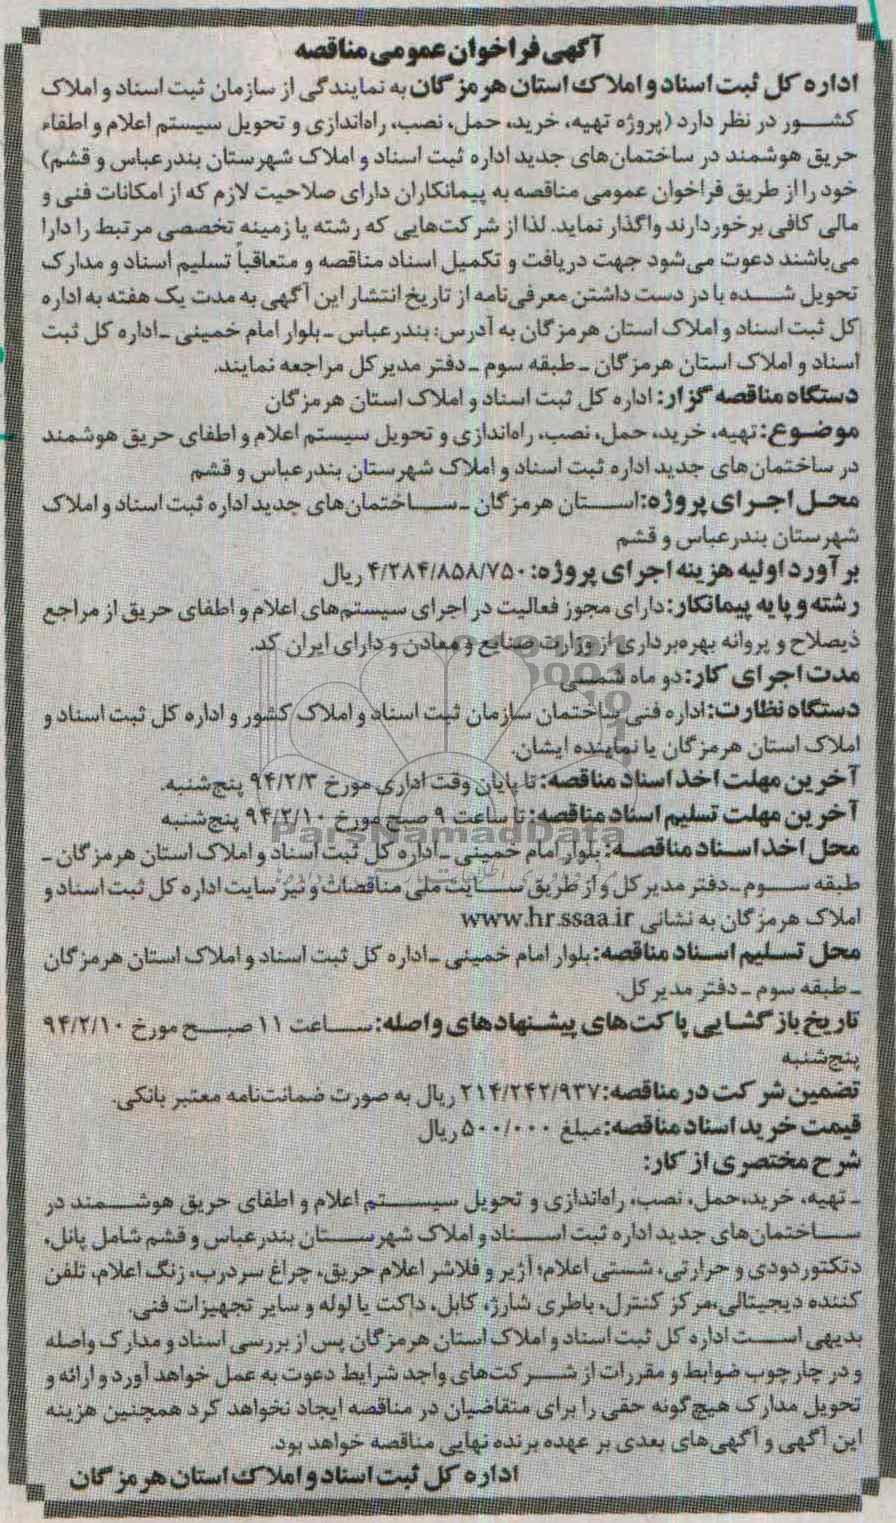 آگهی فراخوان عمومی مناقصه
اداره کل ثبت اسناد و املاک استان هرمزگان به نمایندگی از سازمان ثبت اسناد و املاک
کشور در نظر دارد (پروژه تهیه، خرید، حمل، نصب، راه‌اندازی و تحویل سیستم اعلام و اطفاء
حریق هوشمند در ساختمان‌های جدید اداره ثبت اسناد و املاک شهرستان بندرعباس و قشم)
خود را از طریق فراخوان عمومی مناقصه به پیمانکاران دارای صلاحیت لازم که از امکانات فنی و
مالی کافی برخوردارند واگذار نماید. لذا از شرکت‌هایی که رشته یا زمینه تخصصی مرتبط را دارا
می‌باشند دعوت می‌شود جهت دریافت و تکمیل اسناد مناقصه و متعاقباً تسلیم اسناد و مدارک
تحویل شده با در دست داشتن معرفی‌نامه از تاریخ انتشار این آگهی به مدت یک هفته به اداره
کل ثبت اسناد و املاک استان هرمزگان به آدرس: بندرعباس ـ بلوار امام خمینی ـ اداره کل ثبت
اسناد و املاک استان هرمزگان ـ طبقه سوم ـ دفتر مدیرکل مراجعه نمایند.
دستگاه مناقصه گزار: اداره کل ثبت اسناد و املاک استان هرمزگان
موضوع: تهیه، خرید، حمل، نصب، راه‌اندازی و تحویل سیستم اعلام و اطفای حریق هوشمند
در ساختمان‌های جدید اداره ثبت اسناد و املاک شهرستان بندرعباس و قشم
محل اجرای پروژه: استان هرمزگان ـ ساختمان‌های جدید اداره ثبت اسناد و املاک
شهرستان بندرعباس و قشم
برآورد اولیه هزینه اجرای پروژه: ۴/۲۸۴/۸۵۸/۷۵۰ ریال
رشته و پایه پیمانکار: دارای مجوز فعالیت در اجرای سیستم‌های اعلام و اطفای حریق از مراجع
ذیصلاح و پروانه بهره‌برداری از وزارت صنایع و معادن و دارای ایران کد.
مدت اجرای کار: دو ماه شمسی
دستگاه نظارت: اداره فنی ساختمان سازمان ثبت اسناد و املاک کشور و اداره کل ثبت اسناد و
املاک استان هرمزگان یا نماینده ایشان.
آخرین مهلت اخذ اسناد مناقصه: تا پایان وقت اداری مورخ ۹۴/۲/۳ پنج‌شنبه.
آخرین مهلت تسلیم اسناد مناقصه: تا ساعت ۹ صبح مورخ ۹۴/۲/۱۰ پنج‌شنبه
ParsNamadData
محل اخذ اسناد مناقصه: بلوار امام خمینی ـ اداره کل ثبت اسناد و املاک استان هرمزگان ـ
طبقه سوم ـ دفتر مدیرکل و از طریق سایت ملی مناقصات و نیز سایت اداره کل ثبت اسناد و
املاک هرمزگان به نشانی www.hr.ssaa.ir
محل تسلیم اسناد مناقصه: بلوار امام خمینی ـ اداره کل ثبت اسناد و املاک استان هرمزگان
ـ طبقه سوم ـ دفتر مدیرکل.
تاریخ بازگشایی پاکت‌های پیشنهادهای واصله: ساعت ۱۱ صبح مورخ ۹۴/۲/۱۰
پنج‌شنبه
تضمین شرکت در مناقصه: ۲۱۴/۲۴۲/۹۳۷ ریال به صورت ضمانت‌نامه معتبر بانکی.
قیمت خرید اسناد مناقصه: مبلغ ۵۰۰/۰۰۰ ریال
شرح مختصری از کار:
ـ تهیه، خرید، حمل، نصب، راه‌اندازی و تحویل سیستم اعلام و اطفای حریق هوشمند در
ساختمان‌های جدید اداره ثبت اسناد و املاک شهرستان بندرعباس و قشم شامل پانل،
دتکتور دودی و حرارتی، شستی اعلام، آژیر و فلاشر اعلام حریق، چراغ سردرب، زنگ اعلام، تلفن
کننده دیجیتالی، مرکز کنترل، باطری شارژ، کابل، داکت یا لوله و سایر تجهیزات فنی.
بدیهی است اداره کل ثبت اسناد و املاک استان هرمزگان پس از بررسی اسناد و مدارک واصله
و در چارچوب ضوابط و مقررات از شرکت‌های واجد شرایط دعوت به عمل خواهد آورد و ارائه و
تحویل مدارک هیچ‌گونه حقی را برای متقاضیان در مناقصه ایجاد نخواهد کرد همچنین هزینه
این آگهی و آگهی‌های بعدی بر عهده برنده نهایی مناقصه خواهد بود.
اداره کل ثبت اسناد و املاک استان هرمزگان